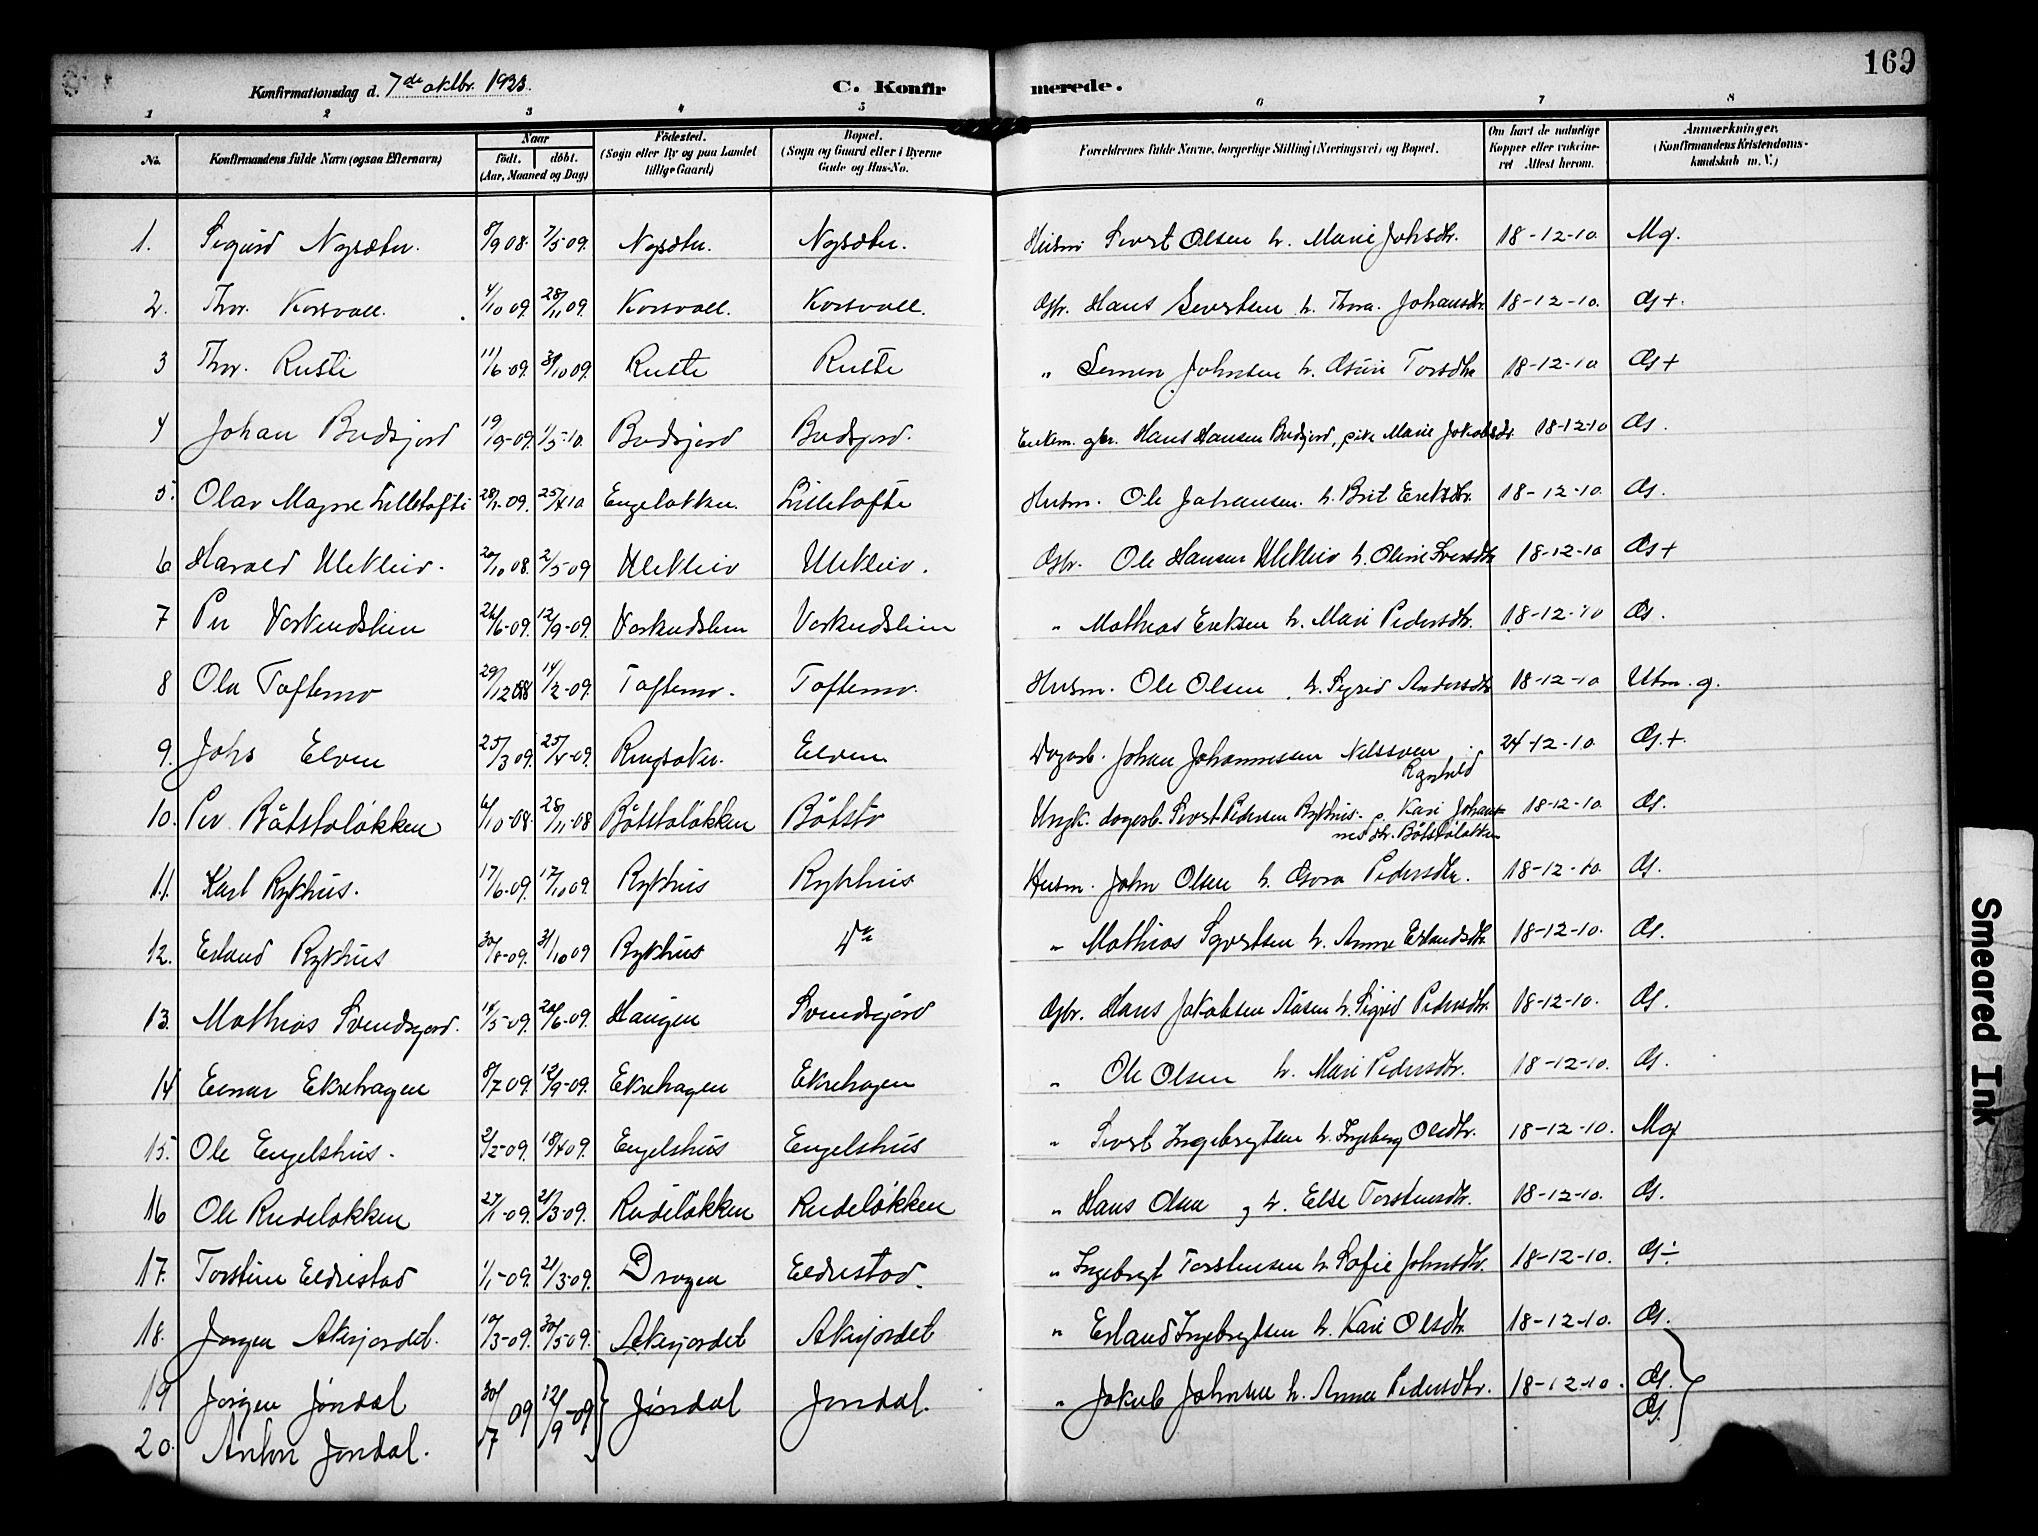 169
Konfirmationsdag d. 7de oktbr. 1923. C. Konfirmerede.
1 2 3 4 5 6 7 8
No. Konfirmandens fulde Navn (ogsaa Efternavn) Naar født. døbt. (Aar, Maaned og Dag) Fødested. (Sogn eller By og paa Landet tillige Gaard) Bopæl. (Sogn og Gaard eller i Byerne Gade og Hus-No. Forældrenes fulde Navne, borgerlige Stilling (Næringsvei) og Bopæl. Om havt de naturlige Kopper eller vakcineret Attest herom. Anmærkninger. (Konfirmandens Kristendomskundskab m. V.)
1. Sigurd Nysæter. 8/9 08. 2/5 09. Nysæter. Nysæter. Husm. Sivert Olsen h. Marie Johsdtr. 18-12-10. Mg.
2. Thor. Korsvoll. 4/10 09 28/11 09. Korsvoll. Korsvoll. Gbr. Hans Sivertsen h. Thora. Johansdtr 18-12-10. G+.
3 Thor. Ruste 11/6-09. 31/10 09. Ruste Ruste " Simen Johnsen h. Torsdtr 18-12-10 G+
4 Johan Budsjord 19/9-09. 1/5-10. Budsjord Budsjord. Enkem. gbr. Hans Hansen Budsjord, pike Marie Jakobsdtr. 18-12-10 G.
5. Olav Magne Lilletofte 09. 25/4 10 Engeløkken. Lilletofte Husm. Ole Johansen. h. Brit Eriksdtr. 18-12-10. G.
6 Harald Ulekleiv. 20/10 08. 2/5-09 Ulekleiv Ulekleiv. Gbr. Ole Hansen Ulekleiv h. Oline Sversdtr 18-12-10 G+
7 Per Vorkendslien 26/6-09. 12/9-09. Vorkendslien Vorkendslien " Mathias Eriksen h. Mari Pedersdtr. 18-12-10 G.
8 Ola Toftemo 29/12 08 14/2-09. Toftemo. Toftemo. Husm. Ole Olsen h. Sigrid Andersdtr 18-12-10 Utm. g.
9. Johs Elven 25/3 09. 25/4-09. Ringsaker. Elven Dagarb. Johan Johannessen Nilssveen Ragnhild 24-12-10. G.+.
10. Per Båtstøløkken 6/10-08. 28/11-08 Båtstøløkken Båtstø Ungk. dagarb. Sivert Pedersen Rykhus. p. Kari Johannesdtr. Båtstøløkken 18-12-10. G.
11. Karl Rykhus. 17/6-09. 17/10 09. Rykhus Rykhus Husm. John Olsen h. Gora Pedersdtr. 18-12-10. G.
12. Erland Rykhus 30/8-09. 31/10 09 Rykhus Do " Mathias Sivertsen h. Anne Erlandsdtr 18-12-10. G.
13. Mathias Svendsgjord. 14/5-09. 20/6-09. Haugen Svendsgjord Gbr. Hans Jakobsen Aasen h. Sigrid Pedersdtr. 18-12-10. G.
14 Einar Ekrehagen 8/7 09. 12/9-09. Ekrehagen Ekrehagen " Ole Olsen h. Mari Pedersdtr. 18-12-10. G.
15. Ole Engelshus. 2/2-09. 18/4 09. Engelshus Engelshus " Sivert Ingebrigtsen h. Ingeborg Olsdtr. 18-12-10. Mg
16 Ole Rudeløkken 27/1-09. 21/3-09. Rudeløkken Rudeløkken " Hans Olsen og h. Else Torstensdtr. 18-12-10. G.
17. Torstein Eldrestad 1/1-09. 21/3-09. Dragen Eldrestad. " Ingebrigt Torstensen h. Sofie Johnsdtr. 18-12-10. G÷
18. Jørgen Akerjordet. 10/3-09. 30/5 09. Akerjordet Akerjordet " Erland Ingebrigtsen h. Kari Olsdtr. 18-12-10. G.
19 Jørgen Jøndal 30/7 09 12/9-09 Jøndal Jøndal. " Jakob Johnsen h. Anne Pedersdtr. 18-12-10. G.
20. Anton Jøndal. G.
Smeared Ink